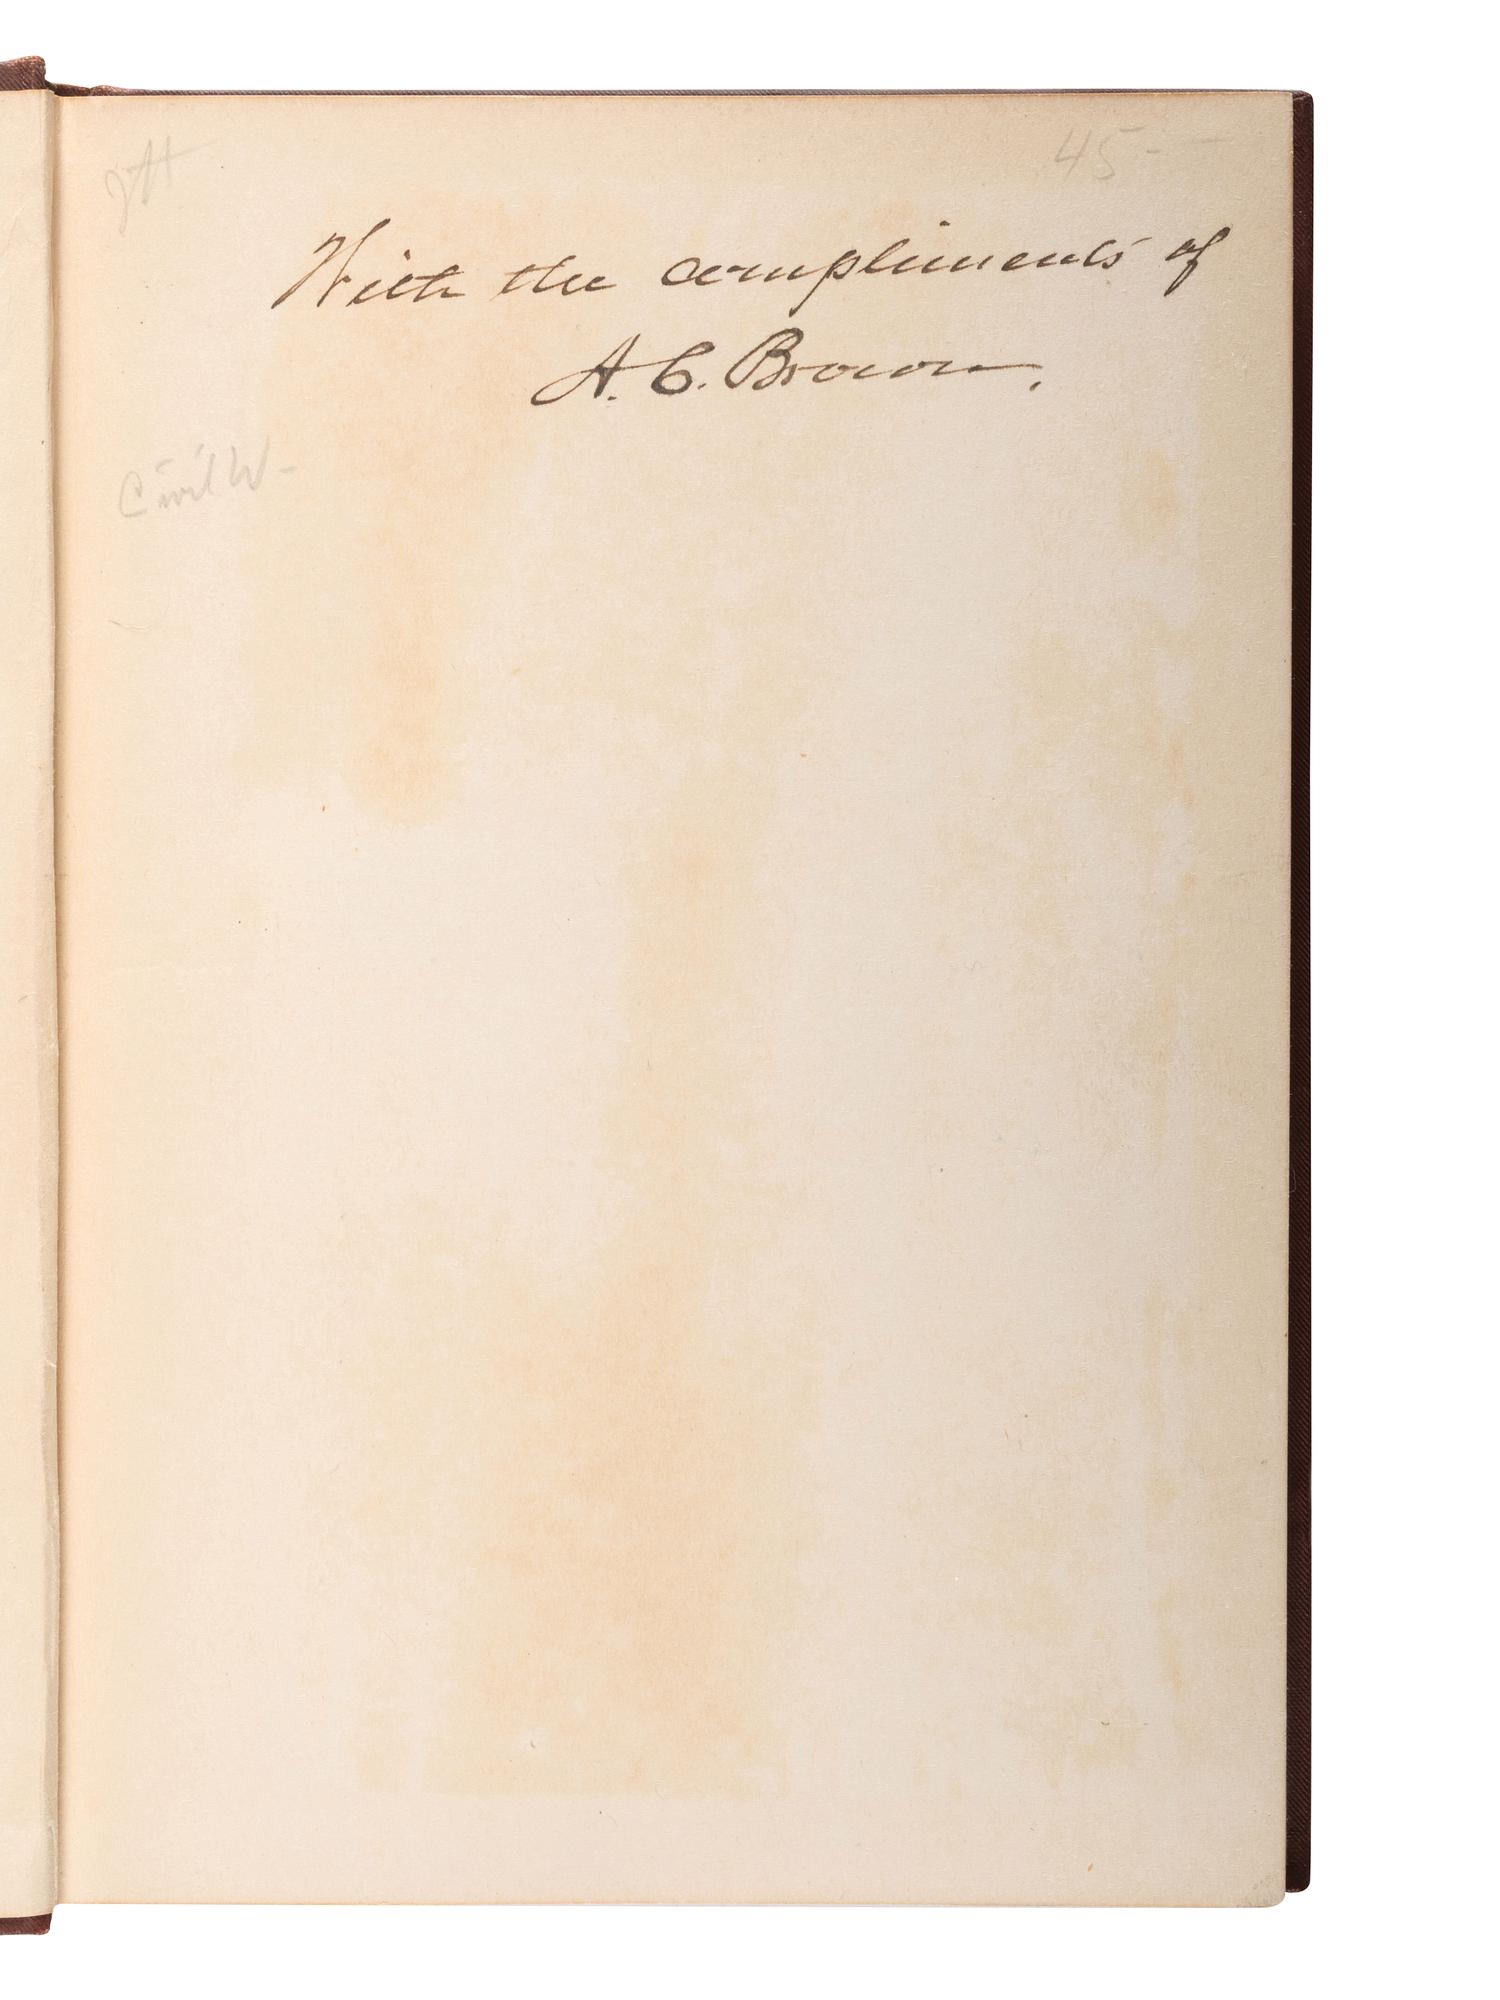 45-
With the compliments of
A. C. Brown.
Civil W-